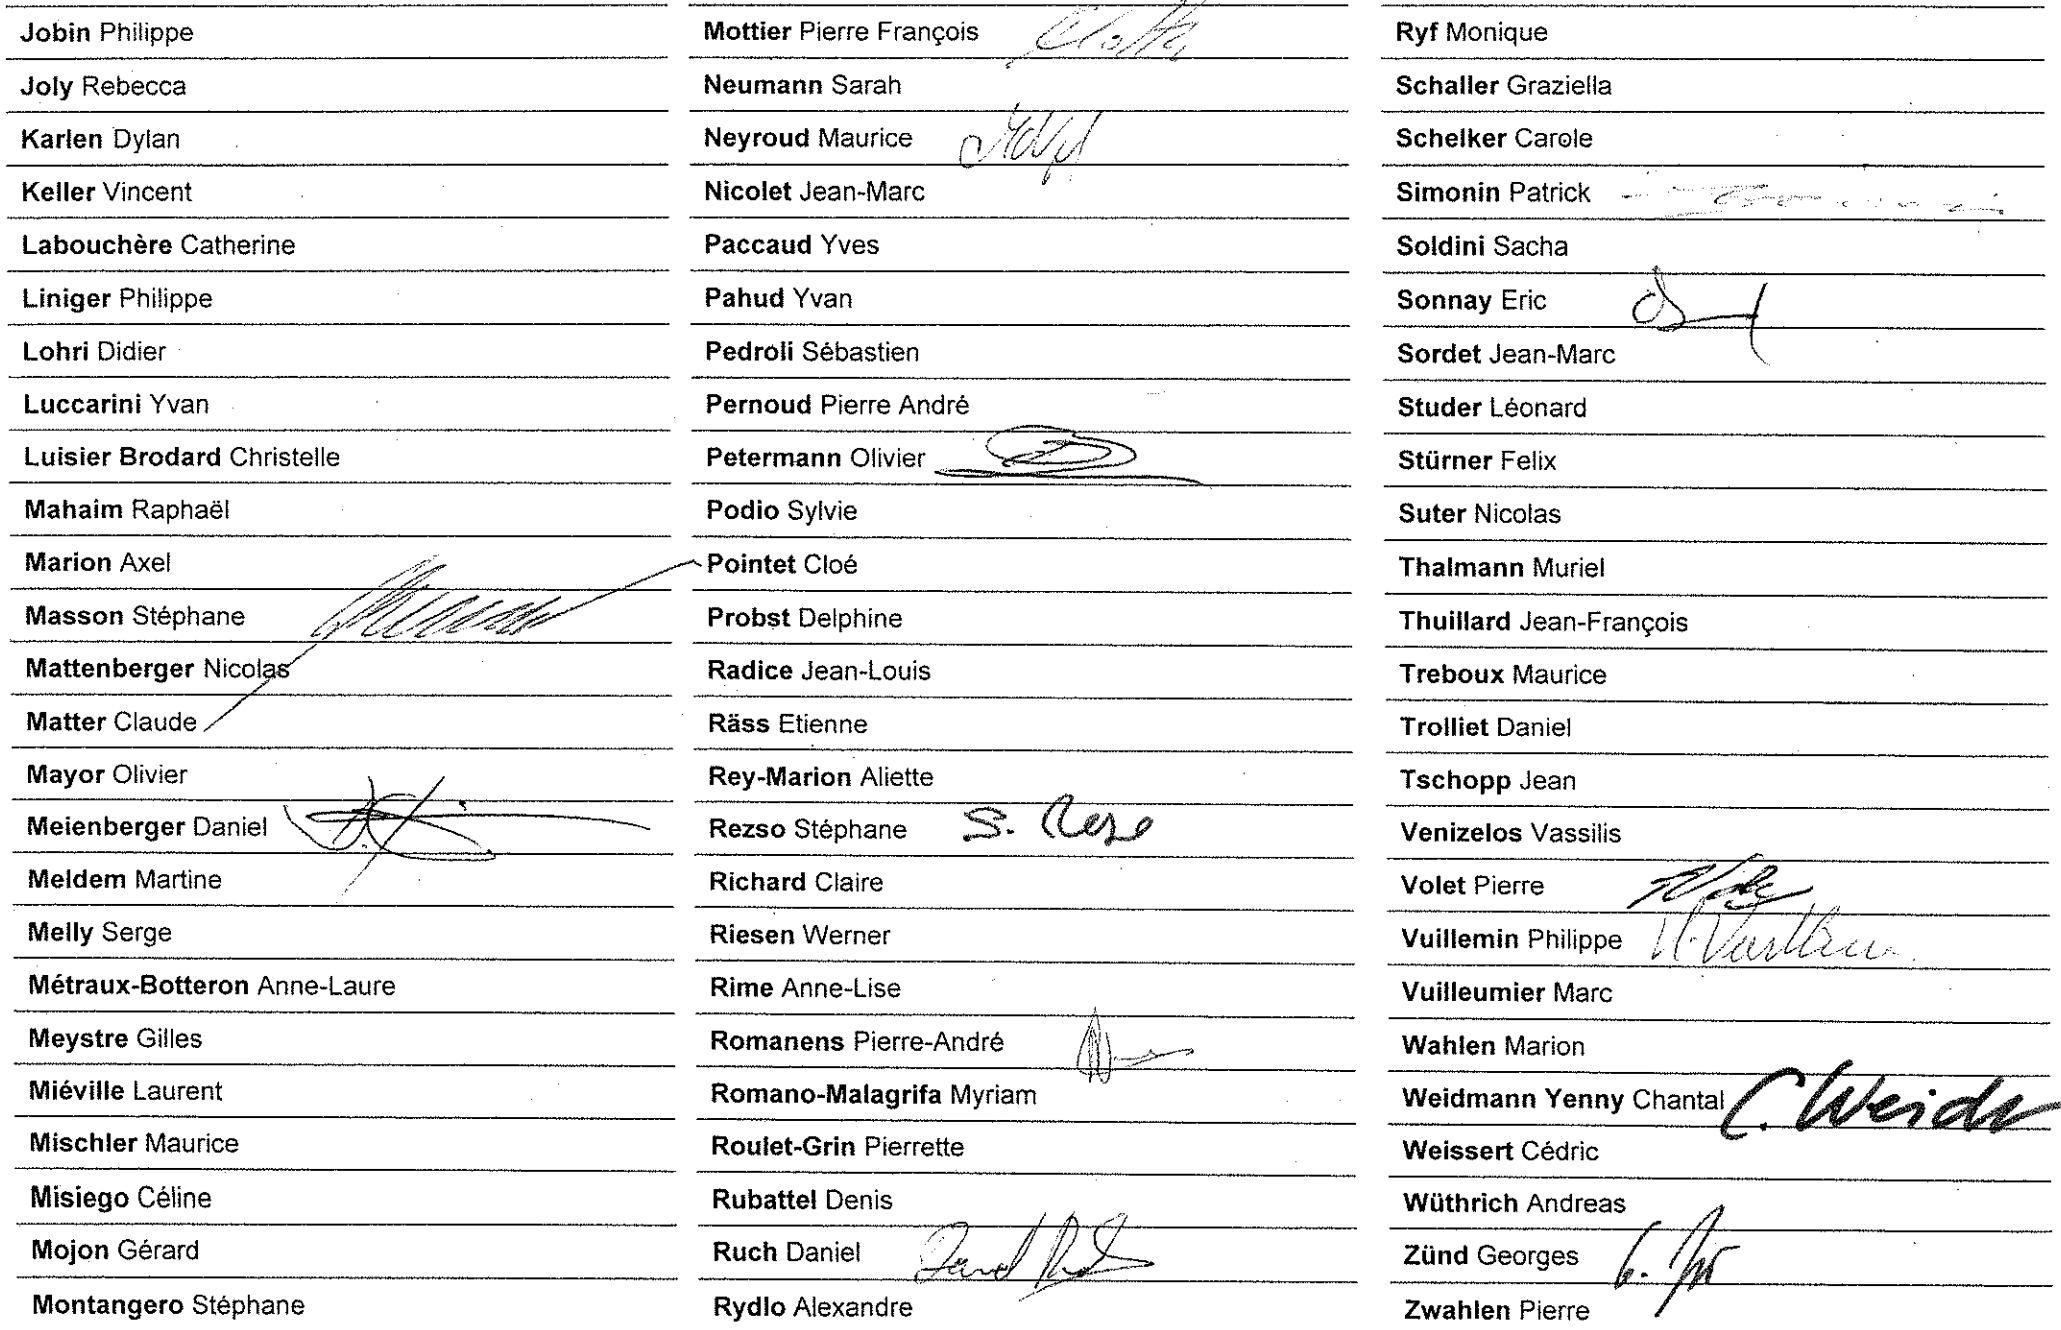 Jobin Philippe
Joly Rebecca
Karlen Dylan
Keller Vincent
Labouchère Catherine
Liniger Philippe
Lohri Didier
Luccarini Yvan
Luisier Brodard Christelle
Mahaim Raphaël
Marion Axel
Masson Stéphane
Mattenberger Nicolas
Matter Claude
Mayor Olivier
Meienberger Daniel
Meldem Martine
Melly Serge
Métraux-Botteron Anne-Laure
Meystre Gilles
Miéville Laurent
Mischler Maurice
Misiego Céline
Mojon Gérard
Montangero Stéphane
Mottier Pierre François
Neumann Sarah
Neyroud Maurice
Nicolet Jean-Marc
Paccaud Yves
Pahud Yvan
Pedroli Sébastien
Pernoud Pierre André
Petermann Olivier
Podio Sylvie
Pointet Cloé
Probst Delphine
Radice Jean-Louis
Räss Etienne
Rey-Marion Aliette
Rezso Stéphane S.
Richard Claire
Riesen Werner
Rime Anne-Lise
Romanens Pierre-André
Romano-Malagrifa Myriam
Roulet-Grin Pierrette
Rubattel Denis
Ruch Daniel
Rydlo Alexandre
Ryf Monique
Schaller Graziella
Schelker Carole
Simonin Patrick
Soldini Sacha
Sonnay Eric
Sordet Jean-Marc
Studer Léonard
Stürner Felix
Suter Nicolas
Thalmann Muriel
Thuillard Jean-François
Treboux Maurice
Trolliet Daniel
Tschopp Jean
Venizelos Vassilis
Volet Pierre
Vuillemin Philippe
Vuilleumier Marc
Wahlen Marion
Weidmann Yenny Chantal C. Weid
Weissert Cédric
Wüthrich Andreas
Zünd Georges G.
Zwahlen Pierre